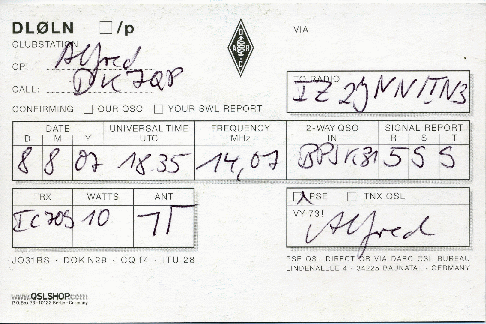 DLØLN □/p
VIA
CLUBSTATION
OP: Alfred
CALL: DK7QP
TO RADIO
IZ2JNN/TN3
CONFIRMING □ OUR QSO □ YOUR SWL REPORT
DATE UNIVERSAL TIME FREQUENCY 2-WAY QSO SIGNAL REPORT
D M Y UTC MHz IN R S T
8 8 07 18.35 14,07 BPSK31 5 5 5
RX WATTS ANT
IC 10
☒ PSE □ TNX QSL
VY 73!
Alfred
JO31RS · DOK N29 · CQ 14 · ITU 28
PSE QSL DIRECT OR VIA DARC QSL BUREAU
LINDENALLEE 4 · 34225 BAUNATAL · GERMANY
www.QSLSHOP.com